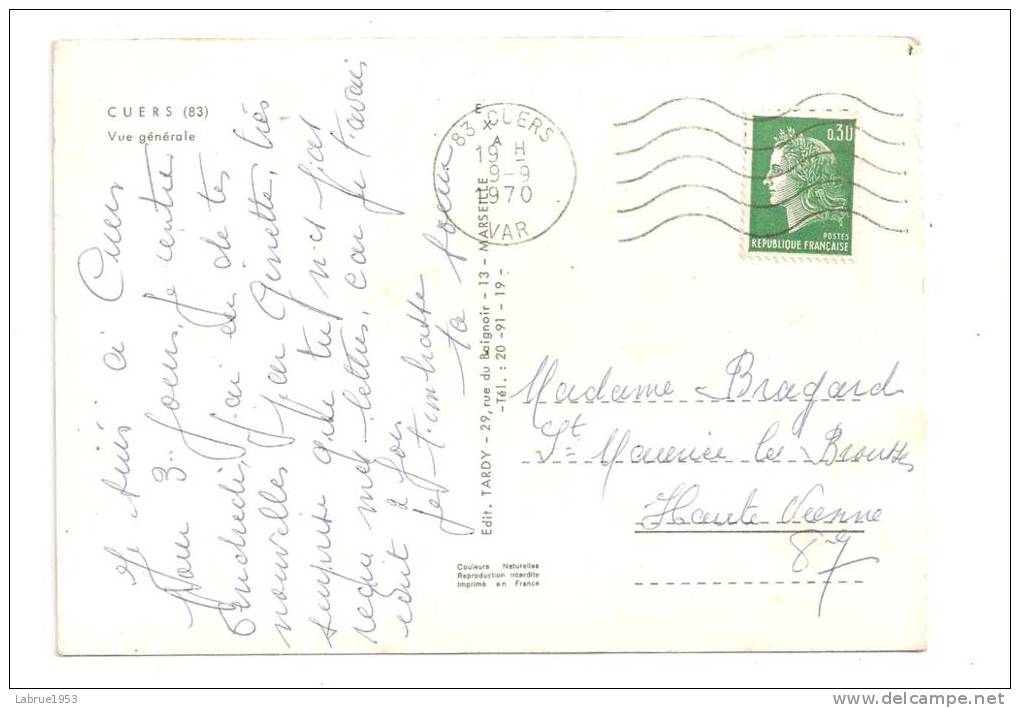 CUERS (83)
Vue générale
Je suis à Cuers
Pour 3 Jours, Je rentre
Vendredi, J'ai eu de tes
nouvelles Par Ginette, très
surprise que tu n'es pas
reçu mes lettres, car Je t'avais
écrit 2 fois
Je t'embrasse
ta soeur
Edit. TARDY - 29, rue du Baignoir - 13 - MARSEILLE
- Tél. : 20-91-19 -
Couleurs Naturelles
Reproduction Interdite
Imprimé en France
83 CUERS
19 H
9-9
1970
VAR
0.30
POSTES
REPUBLIQUE FRANÇAISE
Madame Bragard
St Maurice les Brousses
Haute Vienne
87
Labrue1953
www.delcampe.net